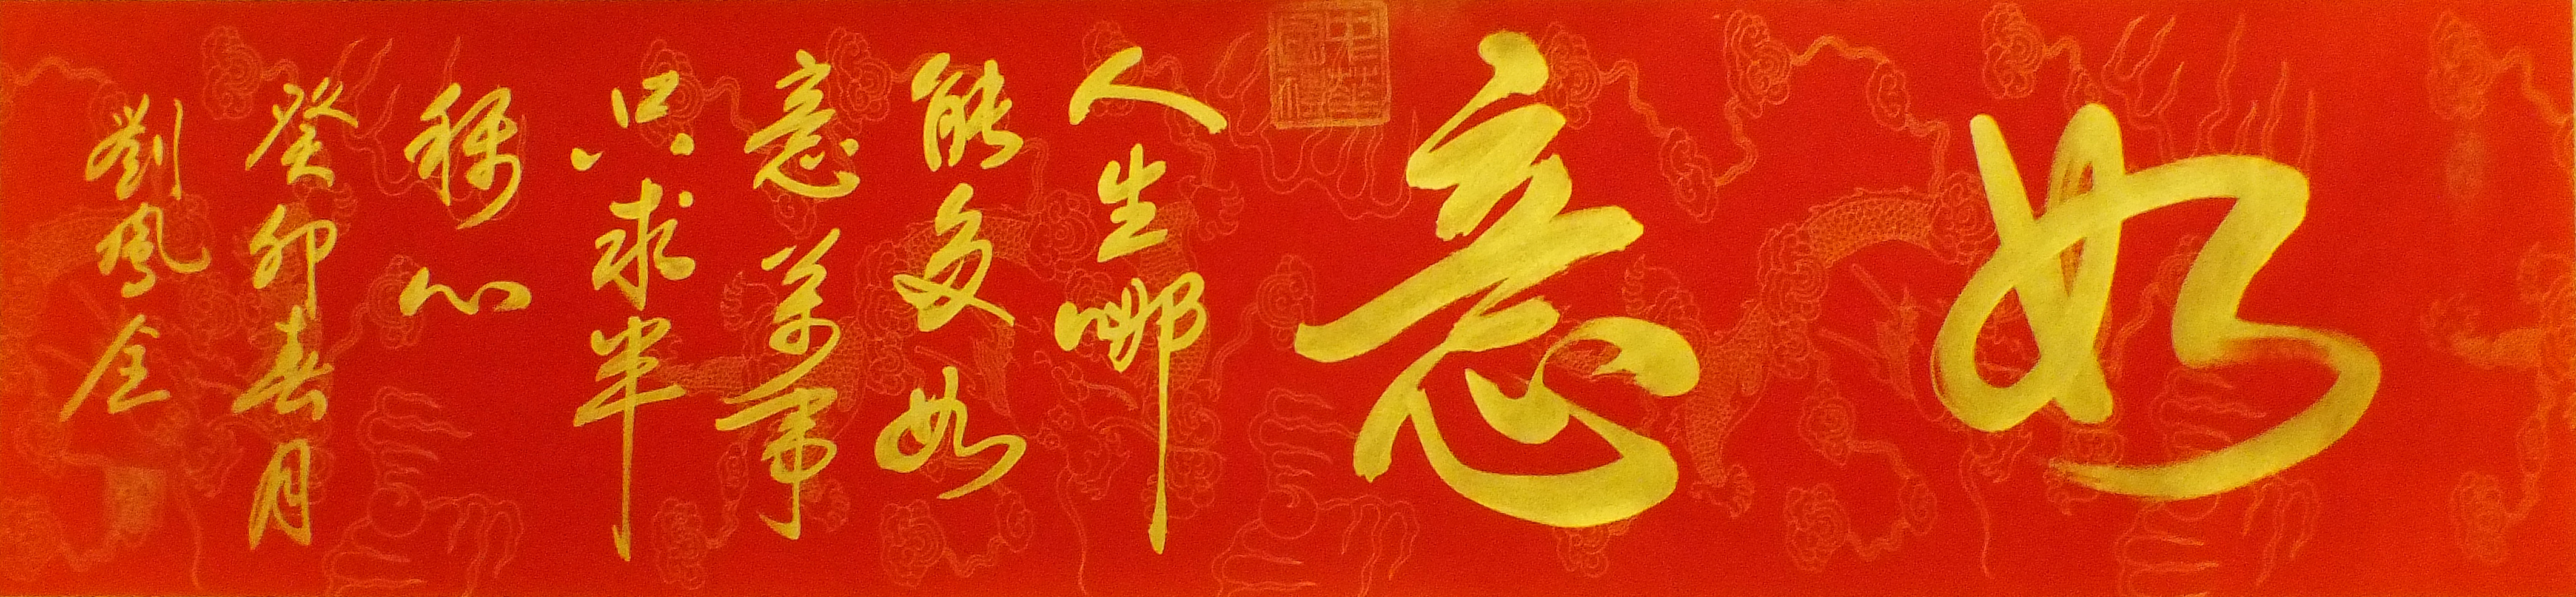 如意
人生哪
能多如
意萬事
只求半
稱心
癸卯春月
劉鳳全